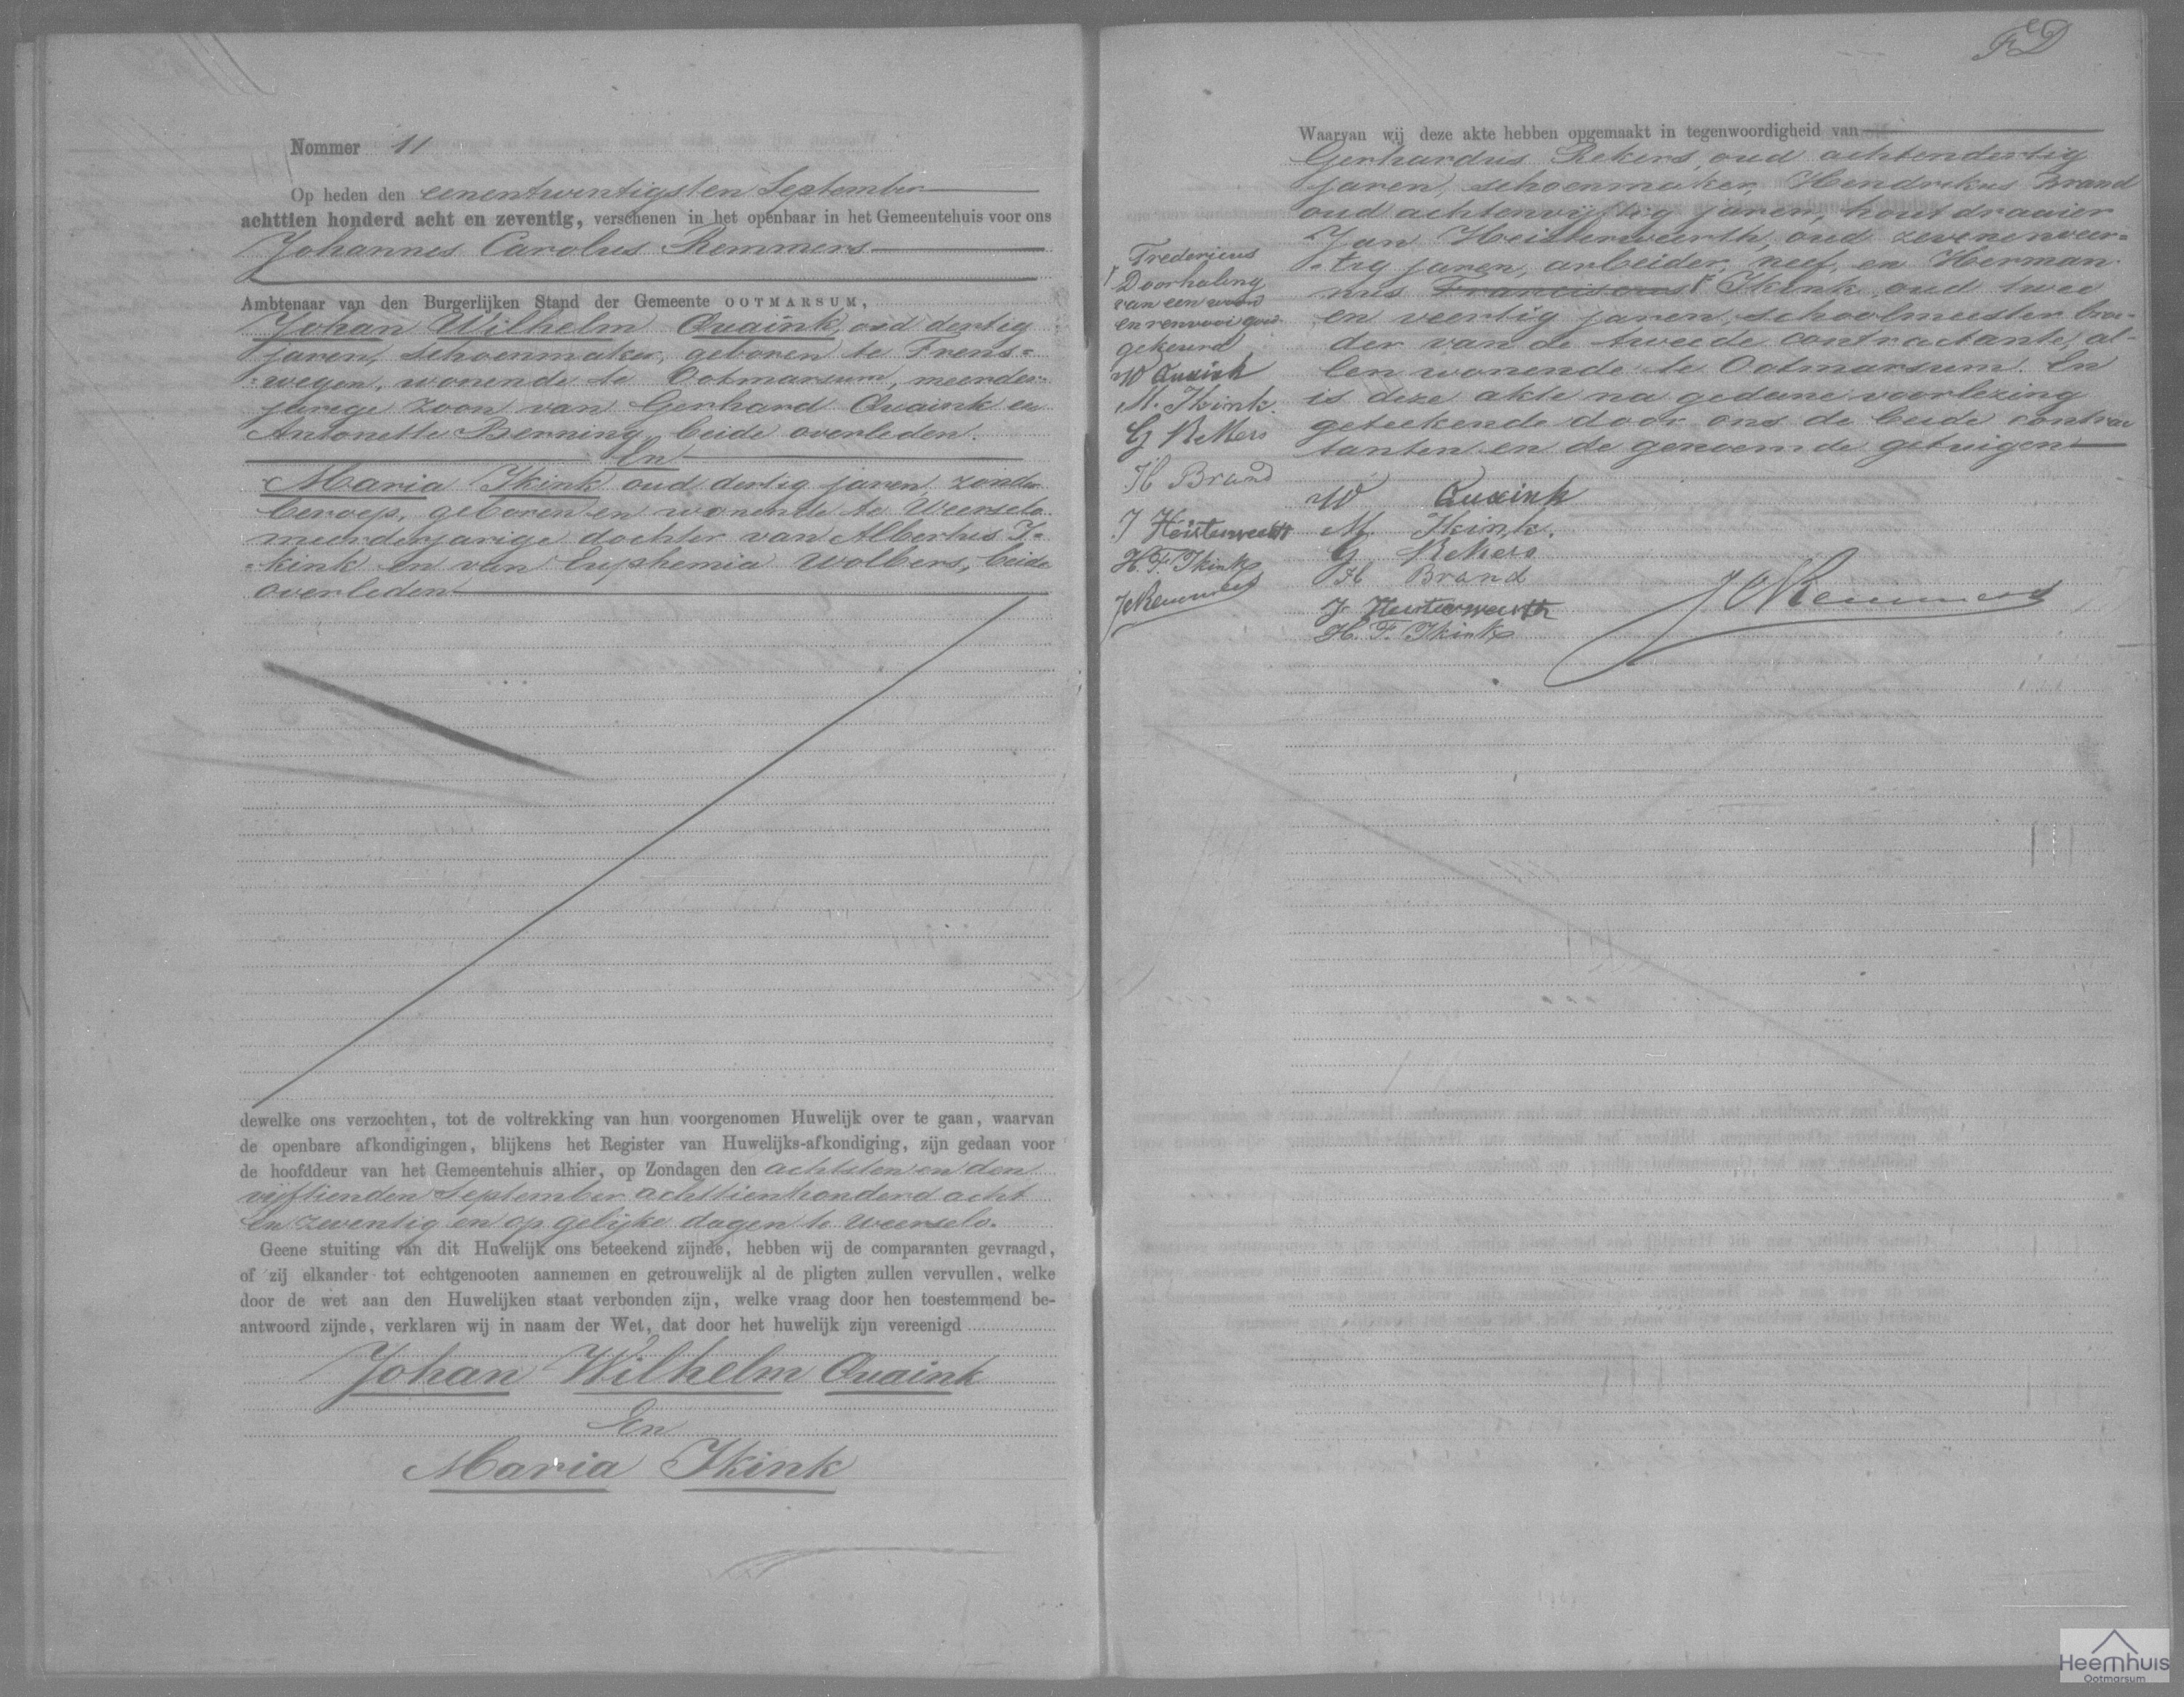 Nommer 11
Op heden den eenentwintigsten September
achttien honderd acht en zeventig, verschenen in het openbaar in het Gemeentehuis voor ons
Johannes Carolus Remmers
Ambtenaar van den Burgerlijken Stand der Gemeente OOTMARSUM,
Johan Wilhelm Quaink, oud dertig
jaren, schoenmaker, geboren te Frens=
=wegen, wonende te Ootmarsum, meerder=
jarige zoon van Gerhard Quaink en
Antonette Berning, beide overleden.
En
Maria Ikink oud dertig jaren, zonder
beroep, geboren en wonende te Weerselo
meerderjarige dochter van Albertus I=
=kink en van Euphemia Wolbers, beide
overleden
dewelke ons verzochten, tot de voltrekking van hun voorgenomen Huwelijk over te gaan, waarvan
de openbare afkondigingen, blijkens het Register van Huwelijks-afkondiging, zijn gedaan voor
de hoofddeur van het Gemeentehuis alhier, op Zondagen den achtsten en den
vijftienden September achttienhonderd acht
en zeventig en op gelijke dagen te Weerselo.
Geene stuiting van dit Huwelijk ons beteekend zijnde, hebben wij de comparanten gevraagd,
of zij elkander tot echtgenooten aannemen en getrouwelijk al de pligten zullen vervullen, welke
door de wet aan den Huwelijken staat verbonden zijn, welke vraag door hen toestemmend be-
antwoord zijnde, verklaren wij in naam der Wet, dat door het huwelijk zijn vereenigd
Johan Wilhelm Quaink
En
Maria Ikink
FD
Waarvan wij deze akte hebben opgemaakt in tegenwoordigheid van
Gerhardus Rekers, oud achtendertig
jaren, schoenmaker, Hendrikus Brand
oud achtenvijftig jaren, houtdraaier
Jan Heisterweerth, oud zevenenveer=
=tig jaren, arbeider, neef, en Herman
nus Franciscus Ikink, oud twee
en veertig jaren, schoolmeester broe-
der van de tweede contractante, al-
len wonende te Ootmarsum. En
is deze akte na gedane voorlezing
geteekende door ons de beide contrac
tanten en de genoemde getuigen
W Quaink
M. Ikink.
G Rekers
H Brand
J Heisterweerth
H. F. Ikink
JCRemmers
Fredericus
Doorhaling
van een woord
en renvooi goed
gekeurd
W Quaink
M. Ikink.
G Rekers
H Brand
J Heisterweerth
H. F. Ikink
JCRemmers
Heemhuis
Ootmarsum